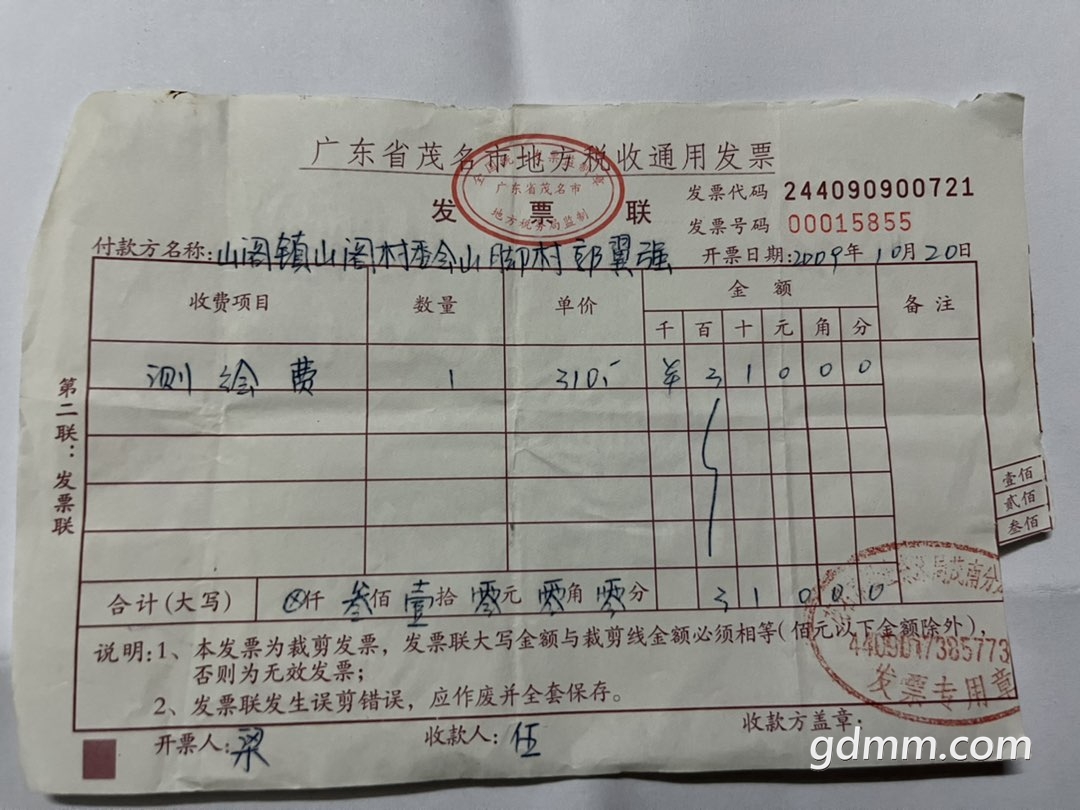 广东省茂名市地方税收通用发票
广东省茂名市
地方税务局监制
发票联
发票代码 244090900721
发票号码 00015855
付款方名称:山阁镇山阁村委会山脚村郭翼强 开票日期:2009年10月20日
收费项目 数量 单价 金额 备注
千 百 十 元 角 分
测绘费 1 310.- ¥ 3 1 0 0 0
合计(大写) ⊗仟叁佰壹拾零元零角零分 3 1 0 0 0
说明:1、本发票为裁剪发票,发票联大写金额与裁剪线金额必须相等(佰元以下金额除外),
否则为无效发票;
2、发票联发生误剪错误,应作废并全套保存。
开票人:梁 收款人:伍 收款方盖章:
第二联:发票联
壹佰
贰佰
叁佰
局茂南分
4409017385773
发票专用章
gdmm.com